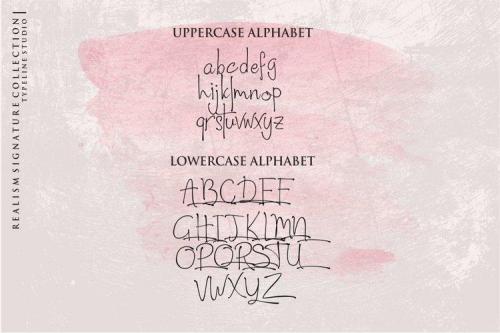 REALISM SIGNATURE COLLECTION
TYPELINE STUDIO
UPPERCASE ALPHABET
abcdefg
hijklmnop
qrstuvwxyz
LOWERCASE ALPHABET
ABCDEF
GHIJKLMN
OPQRSTU
VWXYZ